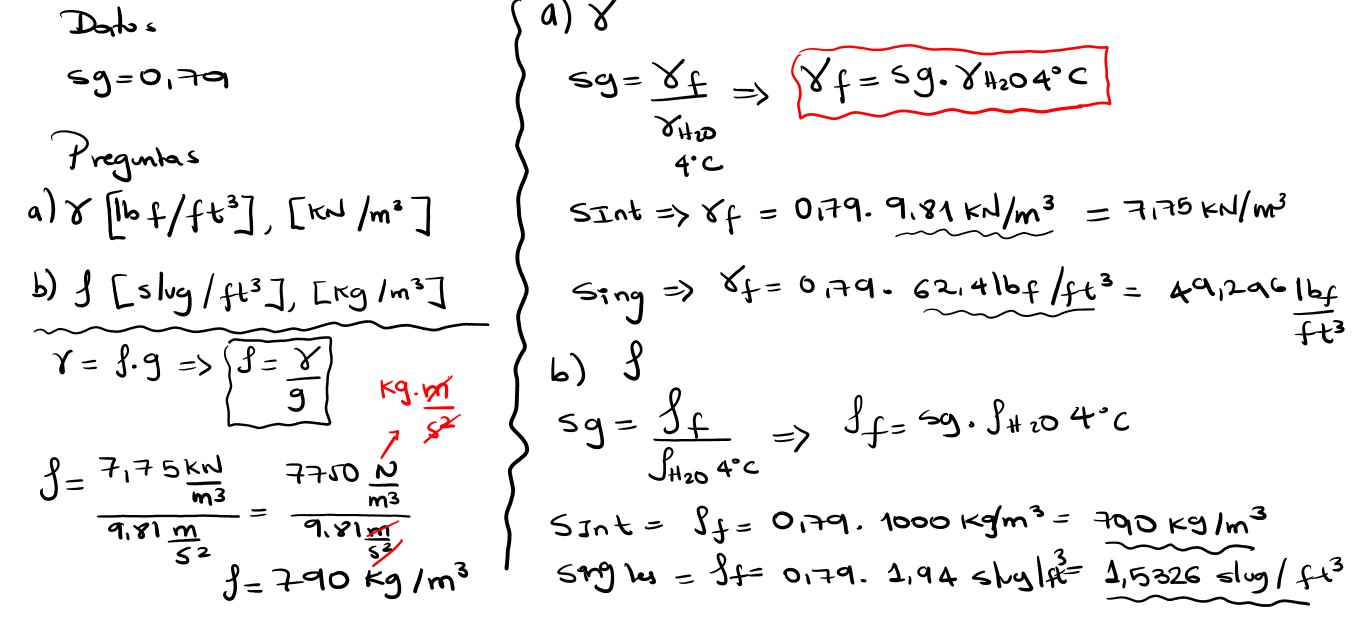 Datos
sg = 0,79
Preguntas
a) γ [lbf/ft³], [KN/m³]
b) ρ [slug/ft³], [Kg/m³]
γ = ρ.g => ρ = γ/g
Kg.m/s²
ρ = 7,75 kN/m³ / 9,81 m/s² = 7750 N/m³ / 9.81 m/s²
ρ = 790 Kg/m³
a) γ
sg = γf/γH2O 4°C => γf = sg. γH2O 4°C
SInt => γf = 0,79. 9,81 KN/m³ = 7,75 KN/m³
Sing => γf = 0,79. 62,4 lbf/ft³ = 49,296 lbf/ft³
b) ρ
sg = ρf/ρH2O 4°C => ρf = sg. ρH2O 4°C
SInt = ρf = 0,79. 1000 Kg/m³ = 790 Kg/m³
= ρf = 0,79. 1,94 slug/ft³ = 1,5326 slug/ft³